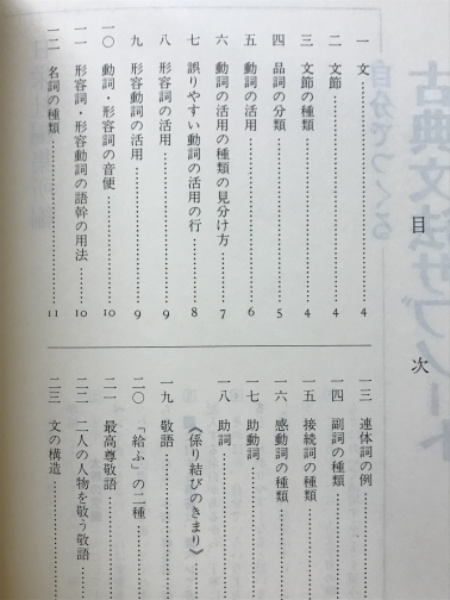 目次
一 文……………4
二 文節……………4
三 文節の種類……………4
四 品詞の分類……………5
五 動詞の活用……………6
六 動詞の活用の種類の見分け方……………7
七 誤りやすい動詞の活用の行……………8
八 形容詞の活用……………9
九 形容動詞の活用……………9
一〇 動詞・形容詞の音便……………10
一一 形容詞・形容動詞の語幹の用法……………10
一二 名詞の種類……………11
一三 連体詞の例……………
一四 副詞の種類……………
一五 接続詞の種類……………
一六 感動詞の種類……………
一七 助動詞……………
一八 助詞……………
《係り結びのきまり》……………
一九 敬語……………
二〇 「給ふ」の二種……………
二一 最高尊敬語……………
二二 二人の人物を敬う敬語……………
二三 文の構造……………